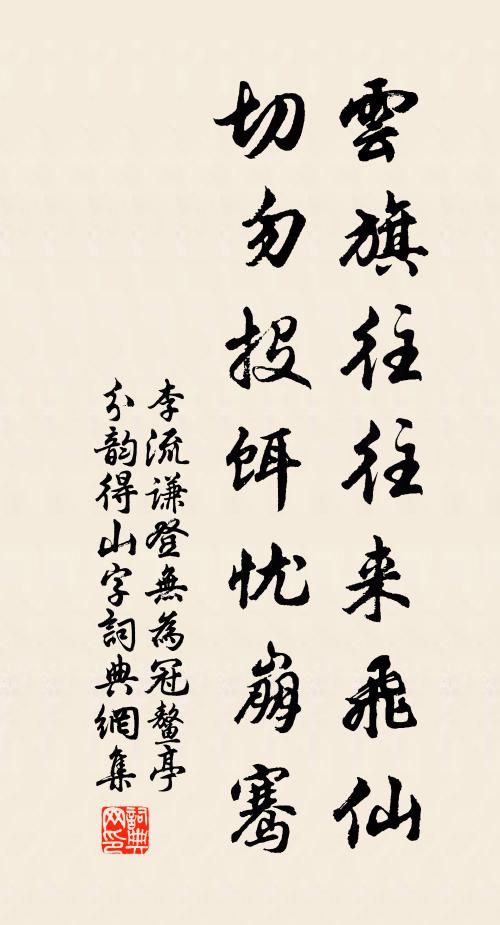 雲旗往往来飛仙
切勿投餌忧崩騫
李流谦登無為冠鳌亭
分韵得山字詞典網集
詞典網印